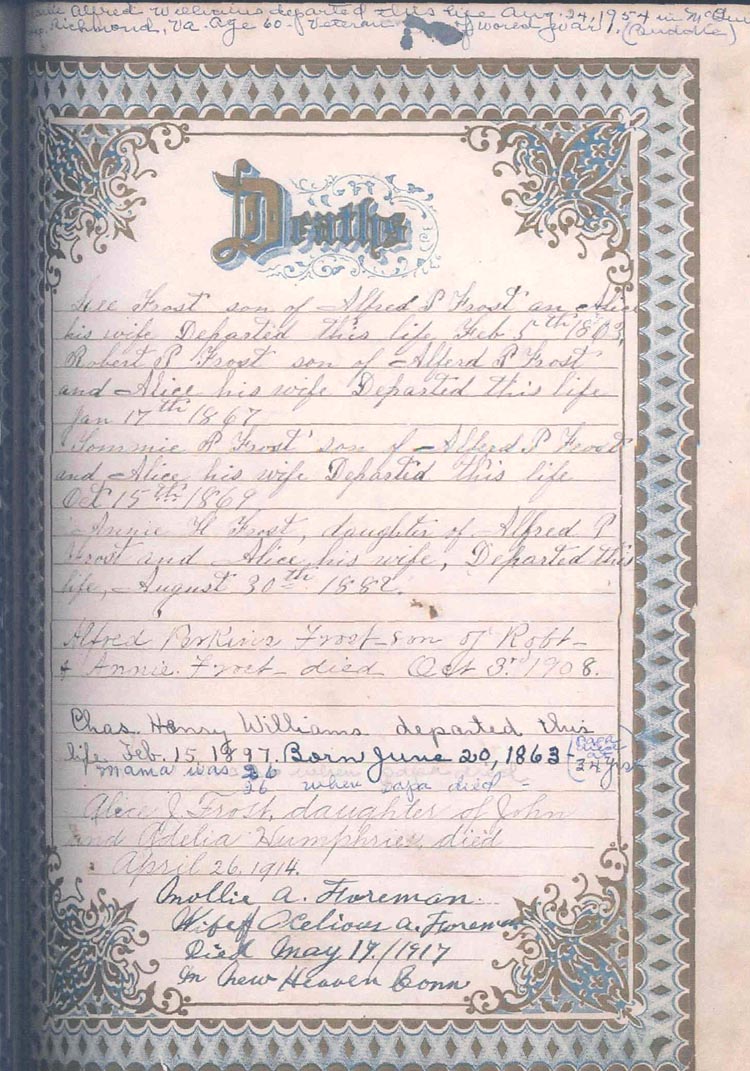 Alfred Williams departed this life Aug. 24, 1954 in Mc
Richmond, Va. Age 60 - Veteran of World War 1. (Buddie)
Deaths
Lee Frost son of Alfred P Frost an Alice
his wife Departed this life Feb 5th 1863,
Robert P. Frost son of Alferd P Frost
and Alice his wife Departed this life
Jan 17th 1867
Tommie P Frost son of Alferd P Frost
and Alice his wife Departed this life
Oct 15th 1869
Annie H Frost, daughter of Alfred P
Frost and Alice, his wife, Departed this
life, August 30th 1882.
Alfred Perkins Frost - son of Robt -
& Annie Frost - died Oct 3rd 1908.
Chas. Henry Williams departed this
life Feb. 15, 1897. Born June 20, 1863 - (Papa
34 yrs
Mama was 26
26 when papa died -
Alice J. Frost, daughter of John
and Adelia Humphries died
April 26, 1914.
Mollie A. Foreman.
Wife of Ocelious A. Foreman
Died May 19, / 1917
In New Heaven Conn